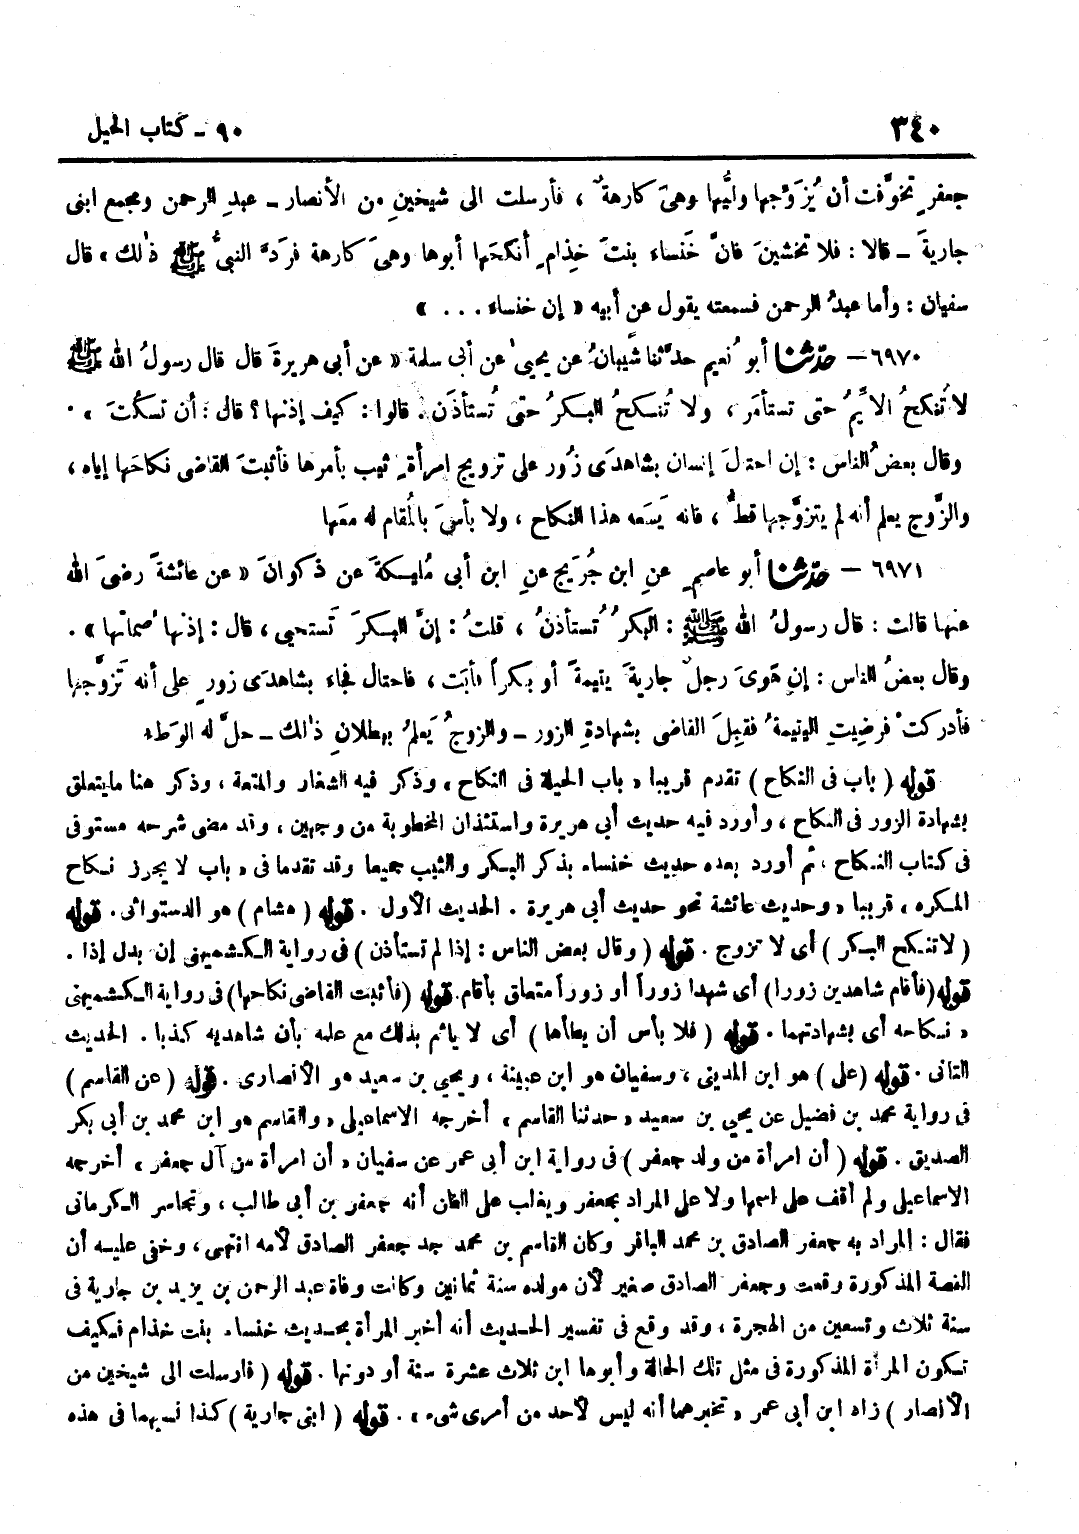 ٣٤٠
٩٠ - كتاب الحيل
جعفرٍ تخوَّفت أن يُزَوِّجها وليُّها وهىَ كارهةٌ ، فأرسلت الى شيخينِ من الأنصار - عبدِ الرحمن ومجمع ابنى
جاريةَ - قالا : فلا تخشينَ فانَّ خَنساء بنتَ خِذامٍ أنكحَها أبوها وهىَ كارهة فردَّ النبىُّ ﷺ ذٰلك » قال
سفيان : وأما عبدُ الرحمن فسمعته يقول عن أبيه « إن خنساء . . . »
٦٩٧٠ - حدّثنا أبو نُعيم حدَّثنا شيبانُ عن يحيىٰ عن أبى سلمة « عن أبى هريرةَ قال قال رسولُ الله ﷺ
لا تُنكحُ الايِّمُ حتى تستأمَر ، ولا تُنسكحُ البكرُ حتى تُستأذَن . قالوا : كيف إذنها ؟ قال : أن تسكتَ » .
وقال بعضُ الناس : إن احتالَ إنسان بشاهدَى زُور على تزويج امرأةٍ ثيب بأمرها فأثبتَ القاضى نكاحَها إياه ،
والزَّوج يعلم أنه لم يتزوَّجها قطُّ ، فانه يَسَعه هذا النكاح ، ولا بأسَ بالُمقام له معَها
٦٩٧١ - حدّثنا أبو عاصمٍ عنِ ابن جُرَيج عنِ ابن أبى مُليكةَ عن ذكوانَ « عن عائشةَ رضىَ الله
عنها قالت : قال رسولُ الله ﷺ : البكرُ تُستأذنُ ، قلتُ : إنَّ البكرَ تَستحيى ، قال : إذنها ُصماتها » .
وقال بعضُ الناس : إن هَوِىَ رجلٌ جاريةَ يتيمةً أو بكراً فأبَت ، فاحتال فجاء بشاهدَى زورٍ على أنه تَزوَّجها
فأدركتْ فرضِيتِ اليتيمةُ فقبِلَ القاضى بشهادةِ الزور - والزوجُ يَعلمُ ببطلانِ ذٰلك - حلَّ له الوَطء
قوله ( باب فى النكاح ) تقدم قريبا « باب الحيلة فى النكاح » وذكر فيه الشغار والمتعة ، وذكر هنا مايتعلق
بشهادة الزور فى النكاح ، وأورد فيه حديث أبى هريرة واستئذان المخطوبة من وجهين ، وقد مضى شرحه مستوفى
فى كتاب النكاح ، ثم أورد بعده حديث خنساء بذكر البكر والثيب جميعا وقد تقدما فى « باب لا يجوز نكاح
المكره ، قريبا « وحديث عائشة نحو حديث أبى هريرة . الحديث الأول . قوله ( هشام ) هو الدستوائى . قوله
( لاتنكح البكر ) أى لا تزوج . قوله ( وقال بعض الناس : إذا لم تستأذن ) فى رواية الكشميهنى إن بدل إذا .
قوله (فأقام شاهدين زورا) أى شهدا زوراً أو زوراً متعلق بأقام. قوله (فأثبت القاضى نكاحها) فى رواية الكشميهنى
« نكاحه أى بشهادتهما . قوله ( فلا بأس أن يطأها ) أى لا يأثم بذلك مع علمه بأن شاهديه كذبا . الحديث
الثانى . قوله (على ) هو ابن المدينى ، وسفيان هو ابن عيينة ، ويحيى بن سعيد هو الأنصارى . قوله ( عن القاسم )
فى رواية محمد بن فضيل عن يحيى بن سعيد « حدثنا القاسم » أخرجه الاسماعيلى « والقاسم هو ابن محمد بن أبى بكر
الصديق . قوله ( أن امرأة من ولد جعفر ) فى رواية ابن أبى عمر عن سفيان « أن امرأة من آل جعفر » أخرجه
الاسماعيلى ولم أقف على اسمها ولا على المراد بجعفر ويغلب على الظن أنه جعفر بن أبى طالب ، وتجاسر الكرمانى
فقال : المراد به جعفر الصادق بن محمد الباقر وكان القاسم بن محمد جد جعفر الصادق لأمه انتهى ، وخفى عليه أن
القصة المذكورة وقعت وجعفر الصادق صغير لأن مولده سنة ثمانين وكانت وفاة عبد الرحمن بن يزيد بن جارية فى
سنة ثلاث وتسعين من الهجرة ، وقد وقع فى تفسير الحديث أنه أخبر المرأة بحديث خنساء بنت خذام فكيف
تكون المرأة المذكورة فى مثل تلك الحالة وأبوها ابن ثلاث عشرة سنة أو دونها . قوله ( فارسلت الى شيخين من
الأنصار ) زاد ابن أبى عمر « تخبرهما أنه ليس لأحد من أمرى شىء » . قوله ( ابنى جارية ) كذا نسبهما فى هذه